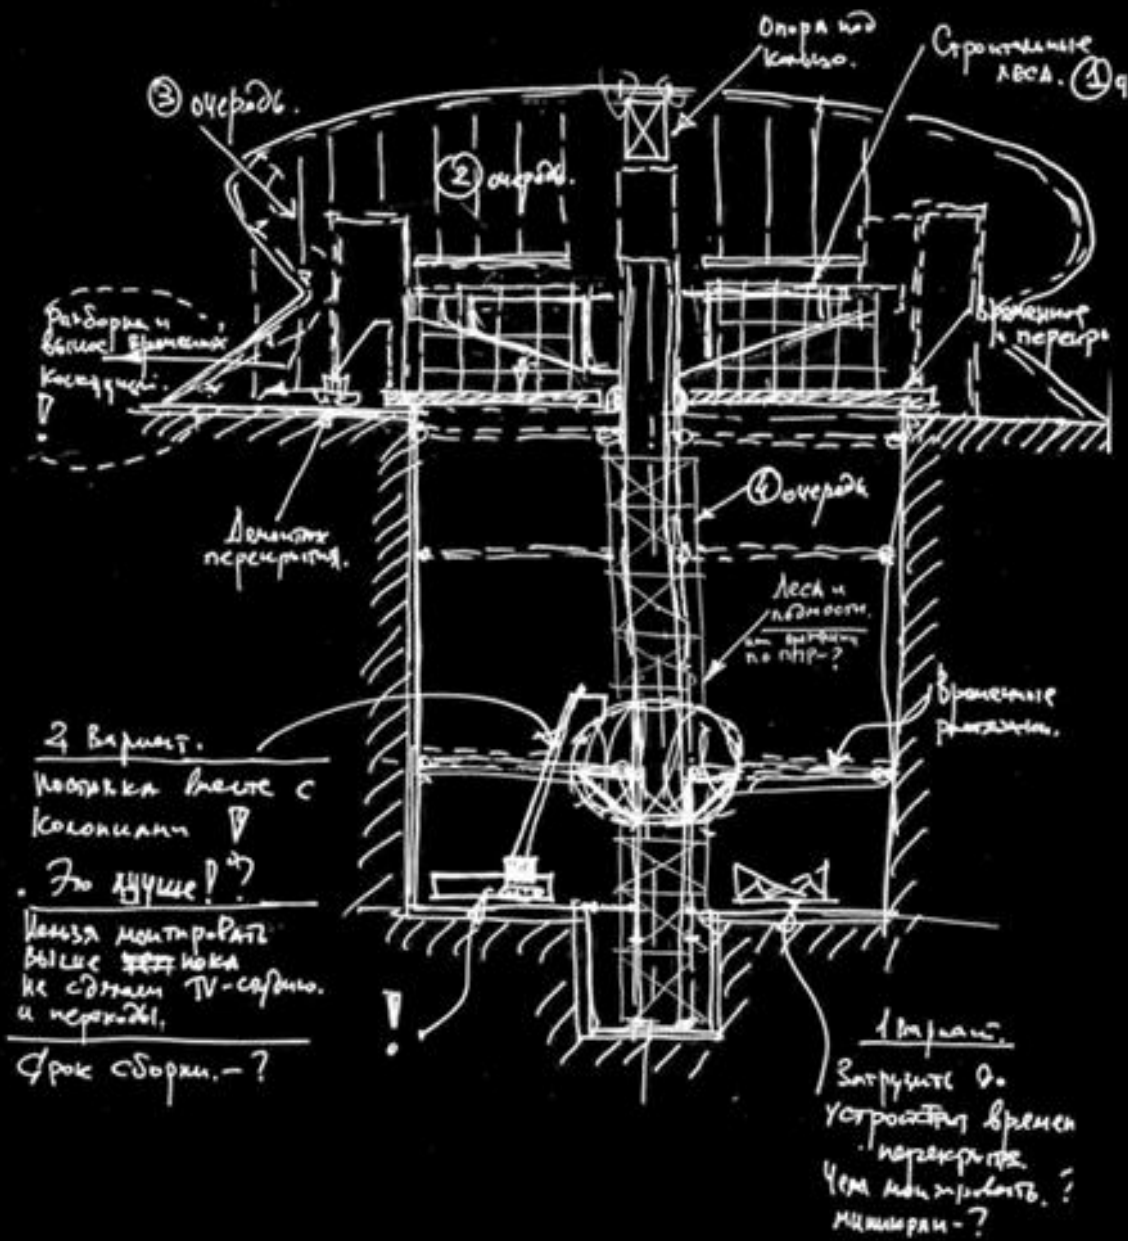 Опора под
кольцо.
Строительные
леса. ① 
③ очередь.
② очередь.
Разборка и
вынос временных
!
Временное
перекр
④ очередь
Демонтаж
перекрытия.
Леса и
подмости.
по ППР-?
Временные
2 Вариант.
Поставка вместе с
колоннами !
Это лучше! ?
Нельзя монтировать
выше пока
не сделаем TV-студию.
и переходы.
Срок сборки. - ?
!
1 Вариант.
Загрузить до
устройства времен
перекрытия.
Чем монтировать. ?
миникран - ?